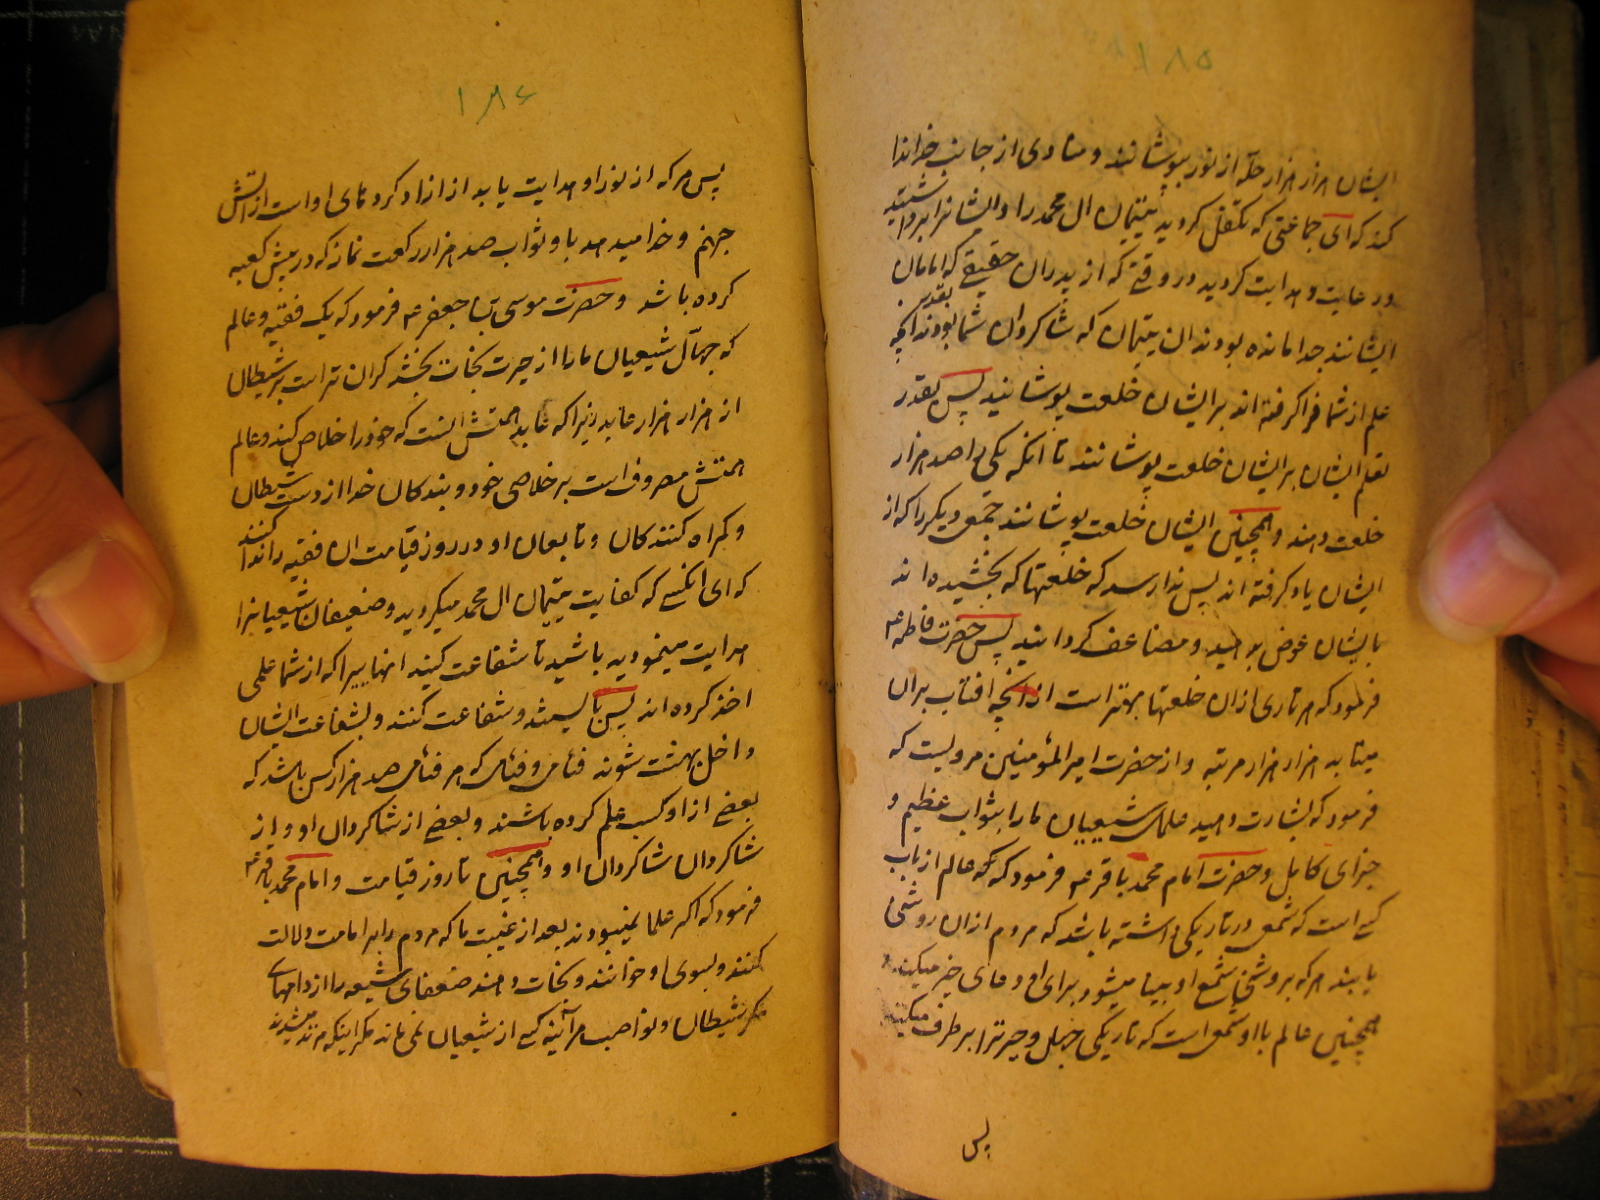 ۱۸۵
ایشان هزار هزار حله از نور بپوشانند و منادی از جانب خدا ندا
کند که ای جماعتی که تکفل کردید یتیمان ال محمد را و ایشانرا برداشتید
و رعایت و هدایت کردید در وقتی که از پدران حقیقی که امامان
ایشانند جدا مانده بودند ان یتیمان که شاکردان شما بودند بقدر انچه
علم از شما فرا کرفته اند بر ایشان خلعت پوشانید پس بقدر
تعلم ایشان بر ایشان خلعت پوشانند تا انکه یکی را صد هزار
خلعت دهند و همچنین ایشان خلعت پوشانند جمعی دیکر را که از
ایشان یاد کرفته اند پس ندا رسد که خلعتها که بخشیده اند
بایشان عوض بدهید و مضاعف کردانید پس حضرت فاطمه ع
فرمود که هر تاری از ان خلعتها بهتر است از انچه افتاب بران
میتابد هزار هزار مرتبه و از حضرت امیر المؤمنین مرویست که
فرمود که بشارت دهید علمای شیعیان ما را بثواب عظیم و
جزای کامل و حضرت امام محمد باقر ع فرمود که عالم از باب
کسی است که شمعی در تاریکی داشته باشد که مردم از ان روشنی
یابند هر که بروشنی شمع او بینا میشود برای او دعای خیر میکند
همچنین عالم با او شمعی است که تاریکی جهل و حیرترا بر طرف میکند
پس
۱۸۶
پس هر که از نور او هدایت یابد از ازاد کردهای او است از اتش
جهنم و خدا میدهد باو ثواب صد هزار رکعت نماز که در پیش کعبه
کرده باشد و حضرت موسی بن جعفر ع فرمود که یک فقیه و عالم
که جهال شیعیان ما را از حیرت نجات بخشد کران تر است بر شیطان
از هزار هزار عابد زیرا که عابد همتش انست که خود را خلاص کند و عالم
همتش مصروف است بر خلاصی خود و بندکان خدا از دست شیطان
و کمراه کنندکان و تابعان او در روز قیامت ان فقیه را ندا کنند
که ای انکسی که کفایت یتیمان ال محمد میکردی و ضعیفان شیعیانرا
هدایت مینمودی باشید تا شفاعت کنید انهاییرا که از شما علمی
اخذ کرده اند پس بایستند و شفاعت کنند و بشفاعت ایشان
داخل بهشت شوند فئامی و فئامی که هر فئامی صد هزار کس باشد که
بعضی از او کسب علم کرده باشند و بعضی از شاکردان او و از
شاکردان شاکردان او و همچنین تا روز قیامت و امام محمد باقر ع
فرمود که اکر علما نمیبودند بعد از غیبت ما که مردم را بر امامت دلالت
کنند و بسوی او خوانند و نجات دهند ضعفای شیعه را از دامهای
مکر شیطان و نواصب هر آینه کسی از شیعیان نمی ماند مکر اینکه مرتد میشدند